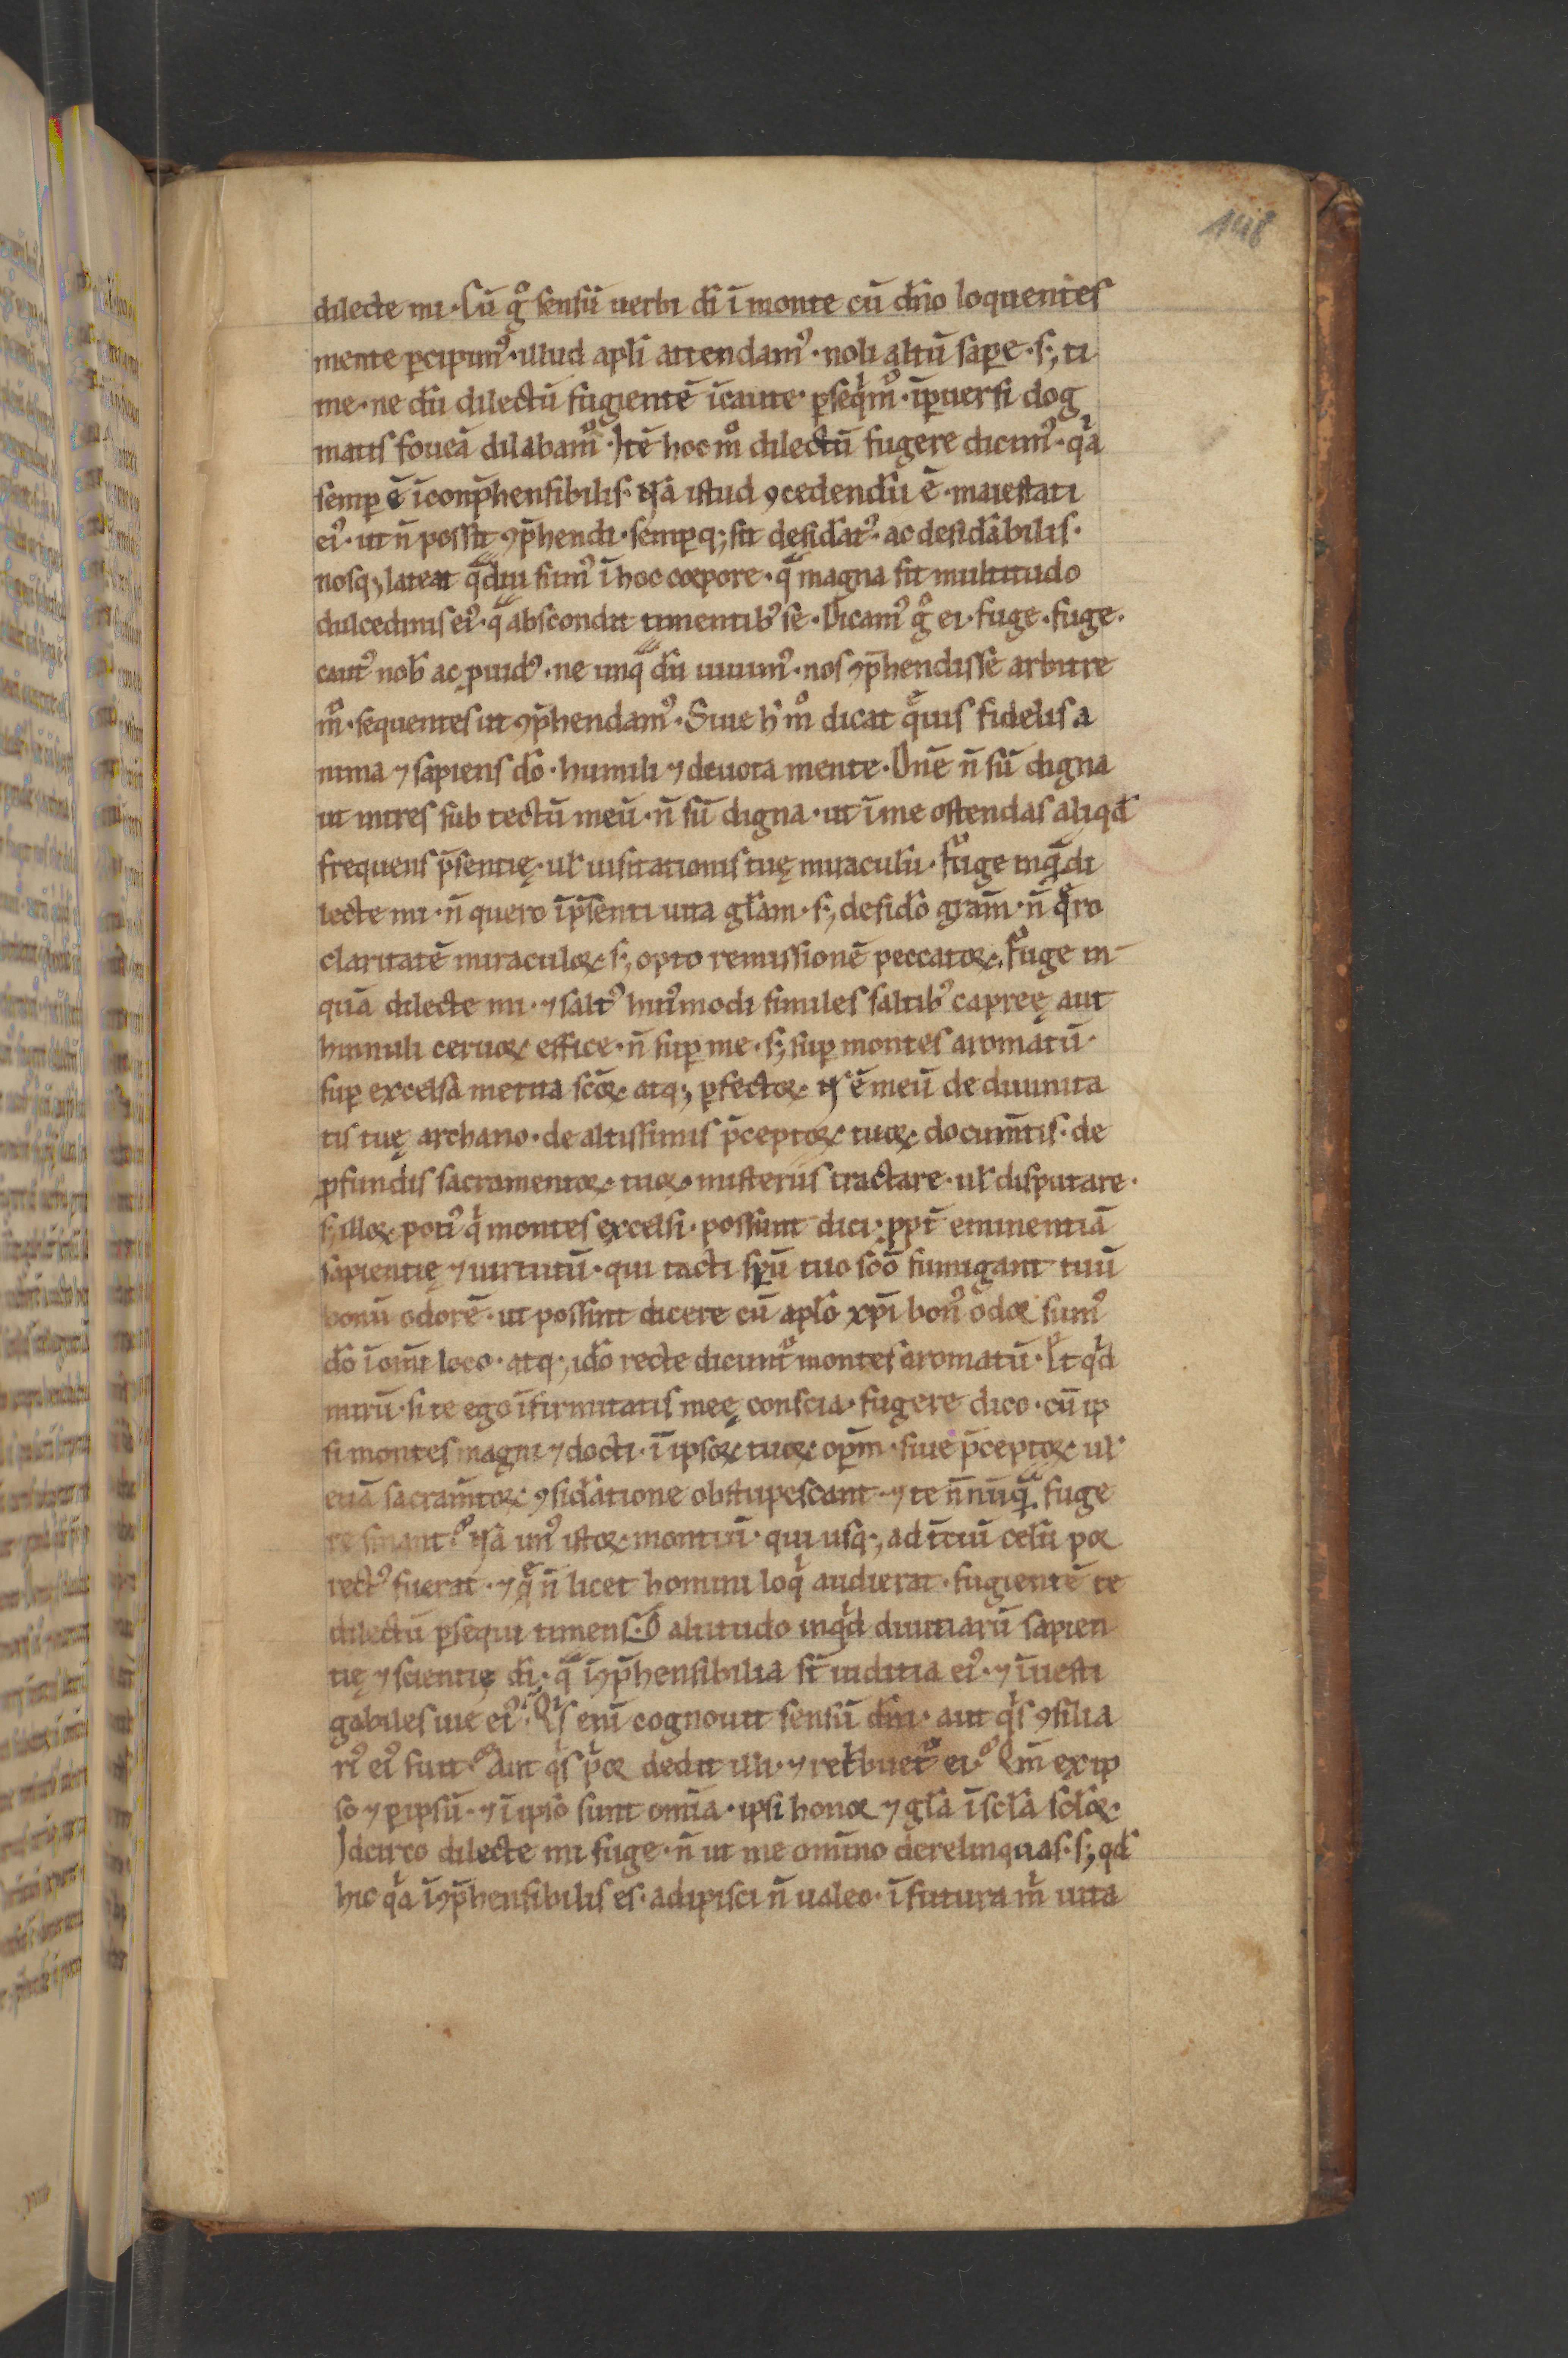 148
dilecte mi · Cū gͦ sensū uerbi dī ī monte cū dn̄o loquentes
mente ꝑcipimꝰ · illud apl̄i attendamꝰ · noli altū saꝑe · sꝫ ti
me · ne dū dilectū fugientē īcaute ꝑseqͥmͬ · īꝑuersi dog
matis foueā dilabamͬ · Itē hoc mͦ dilectū fugere dicimꝰ · qͥa
semꝑ ē īconp̄hensibilis · Nā istud ꝯcedendū ē · maiestati
eiꝰ · ut n̄ possit ꝯp̄hendi · semꝑqꝫ sit desid̄atꝰ · ac desid̄abilis ·
nosqꝫ lateat qͣdiu sumꝰ ī hoc corpore · qͣ magna sit multitudo
dulcedinis eiꝰ · qͣ abscondit timentibꝰ se · Dicamꝰ gͦ ei · fuge · fuge ·
cautꝰ nob̄ ac ꝓuidꝰ · ne unqͣ dū uiuimꝰ · nos ꝯp̄hendisse arbitre
mͬ · sequentes ut ꝯp̄hendamꝰ · Siue h̄ mͦ dicat qͣuis fidelis a
nima ⁊ sapiens dō · humili ⁊ deuota mente · Dn̄e n̄ sū digna
ut intres sub tectū meū · n̄ sū digna · ut ī me ostendas aliqd̄
frequens p̄sentię · ul̄ uisitationis tuę miraculū · Fuge inqͣ di
lecte mi · n̄ quero ī p̄senti uita gl̄am · sꝫ desid̄o grām · n̄ qͣro
claritatē miraculoꝝ · sꝫ opto remissionē peccatoꝝ · Fuge in
quā dilecte mi · ⁊ saltꝰ huiꝰmodi similes saltibꝰ capreę aut
hinnuli ceruoꝝ effice · n̄ suꝑ me · sꝫ suꝑ montes aromatū ·
suꝑ excelsa merita scōꝝ atqꝫ ꝑfectoꝝ · N̄ ē meū de diuinita
tis tuę archano · de altissimis p̄ceptoꝝ tuoꝝ documtīs · de
ꝓfundis sacramentoꝝ tuoꝝ misteriis tractare · ul̄ disputare ·
sꝫ illoꝝ potiꝰ qͥ montes excelsi · possunt dici · ꝓpt̄ eminentiā
sapientię ⁊ uirtutū · qui tacti sp̄ū tuo scō fumigant tuū
bonū odorē · ut possint dicere cū apl̄o xp̄i bonꝰ odor sumꝰ
dō ī om̄i loco · atqꝫ id̄o recte dicuntͬ montes aromatū · Et qͥd
mirū · si te ego īfirmitatis meę conscia · fugere dico · cū ip
si montes magni ⁊ docti · ī ipsoꝝ tuoꝝ oꝑm · siue p̄ceptoꝝ · ul̄
etiā sacram̄toꝝ ꝯsid̄atione obstupescant · ⁊ te n̄nūqͣ fuge
re sinant? Nā unꝰ istoꝝ montiū · qui usqꝫ ad t̄ciū celū por
rectꝰ fuerat · ⁊ qͣ n̄ licet homini loqͥ audierat · fugientē te
dilectū ꝑsequi timens · O altitudo inqͥd diuitiarū sapien
tię ⁊ scientię dī · qͣ īꝯp̄hensibilia st̄ iuditia eiꝰ · ⁊ īuesti
gabiles uie eiꝰ · Qͥs enī cognouit sensū dn̄i · aut qͥs ꝯsilia
riꝰ eiꝰ fuit? Aut qͥs pͥor dedit illi · ⁊ retͥbuetͬ ei? Qm̄ ex ip
so ⁊ ꝑ ipsū · ⁊ ī ipso sunt om̄ia · ipsi honor ⁊ gl̄a ī scl̄a scl̄oꝝ ·
Idcirco dilecte mi fuge · n̄ ut me om̄ino derelinquas · sꝫ qd̄
hic qͥa īꝯp̄hensibilis es · adipisci n̄ ualeo · ī futura mͥ uita